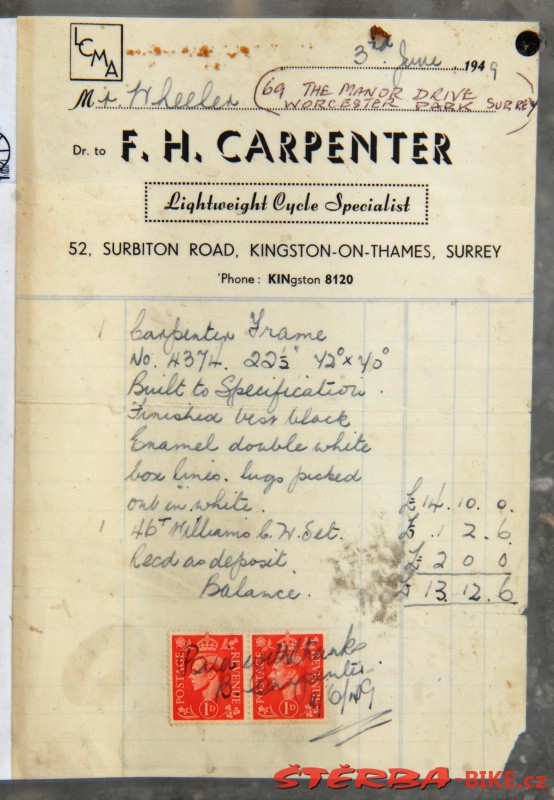 LCMA
3rd June 1949
Mr. Wheeler (69 THE MANOR DRIVE
WORCESTER PARK SURREY)
Dr. to F. H. CARPENTER
Lightweight Cycle Specialist
52, SURBITON ROAD, KINGSTON-ON-THAMES, SURREY
'Phone: KINgston 8120
1 Carpenter Frame
No. 4374. 22½" 72° x 70°
Built to Specification.
Finished best black
Enamel double white
box lines. lugs picked
out in white. 14. 10. 0.
1 46T Williams C.W. Set. 1 2. 6
Recd as deposit. 2 0 0
Balance. 13. 12. 6
POSTAGE REVENUE
1D 1D
Paid with thanks
Carpenter
6/49
ŠTĚRBA-BIKE.cz